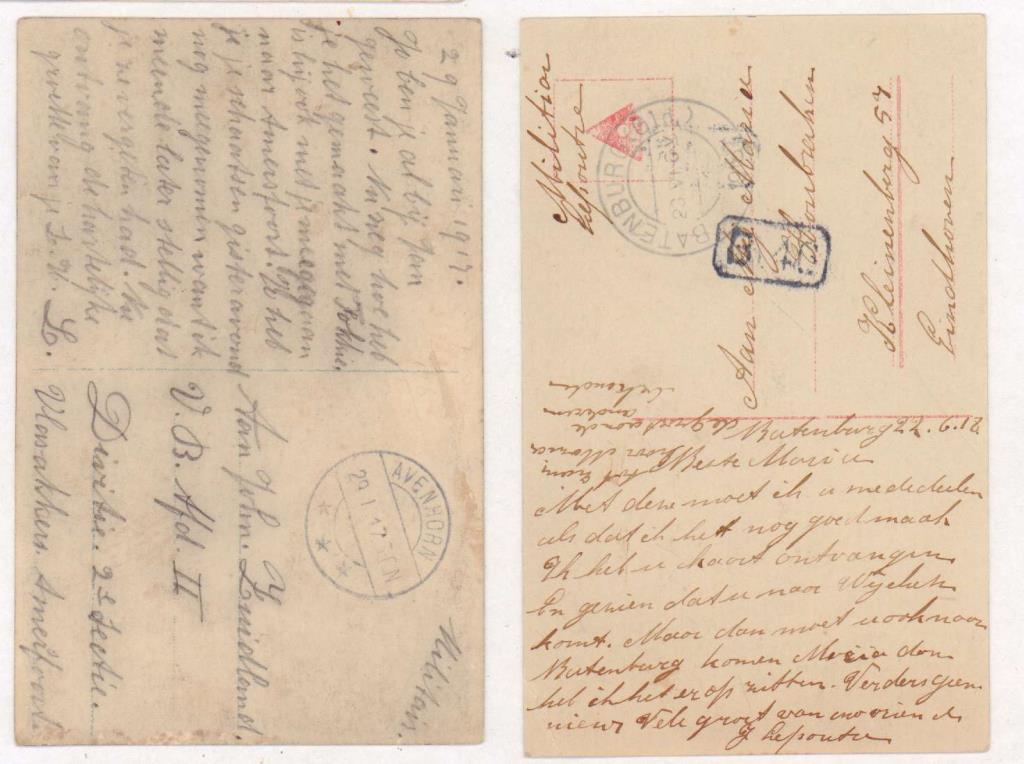 29 Januari 1917.
Jo ben je al bij Jan
geweest. Nu zeg hoe heb
je het gemaakt met Fokkie.
is hij ook met je meegegaan
naar Amersfoort. Ik heb
je je schaatsen gisteravond
nog meegenomen want ik
meende later stellig dat
je ze vergeten had. Nu
ontvang de hartelijke
groeten van je
L.
Militair.
AVENHORN
29.1.17. N
Aan John. Zuidland.
V. B. Afd. II
Divisie. 2e Sectie.
Vlasakkers. Amersfoort.
Militair
Lepoutre
BATENBURG (Gld.)
Aan Mej Maria
Houbraken
Kleinenberg 57
Eindhoven
Batenburg 22.9.18
Beste Maria
Met deze moet ik u mededeelen
als dat ik het nog goed maak
Ik heb u kaart ontvangen
En gezien dat u naar Wijchen
komt. Maar dan moet u ook naar
Batenburg komen Maria dan
heb ik het er op zitten. Verders geen
nieuws Vele groet van uw vriend
J Lepoutre